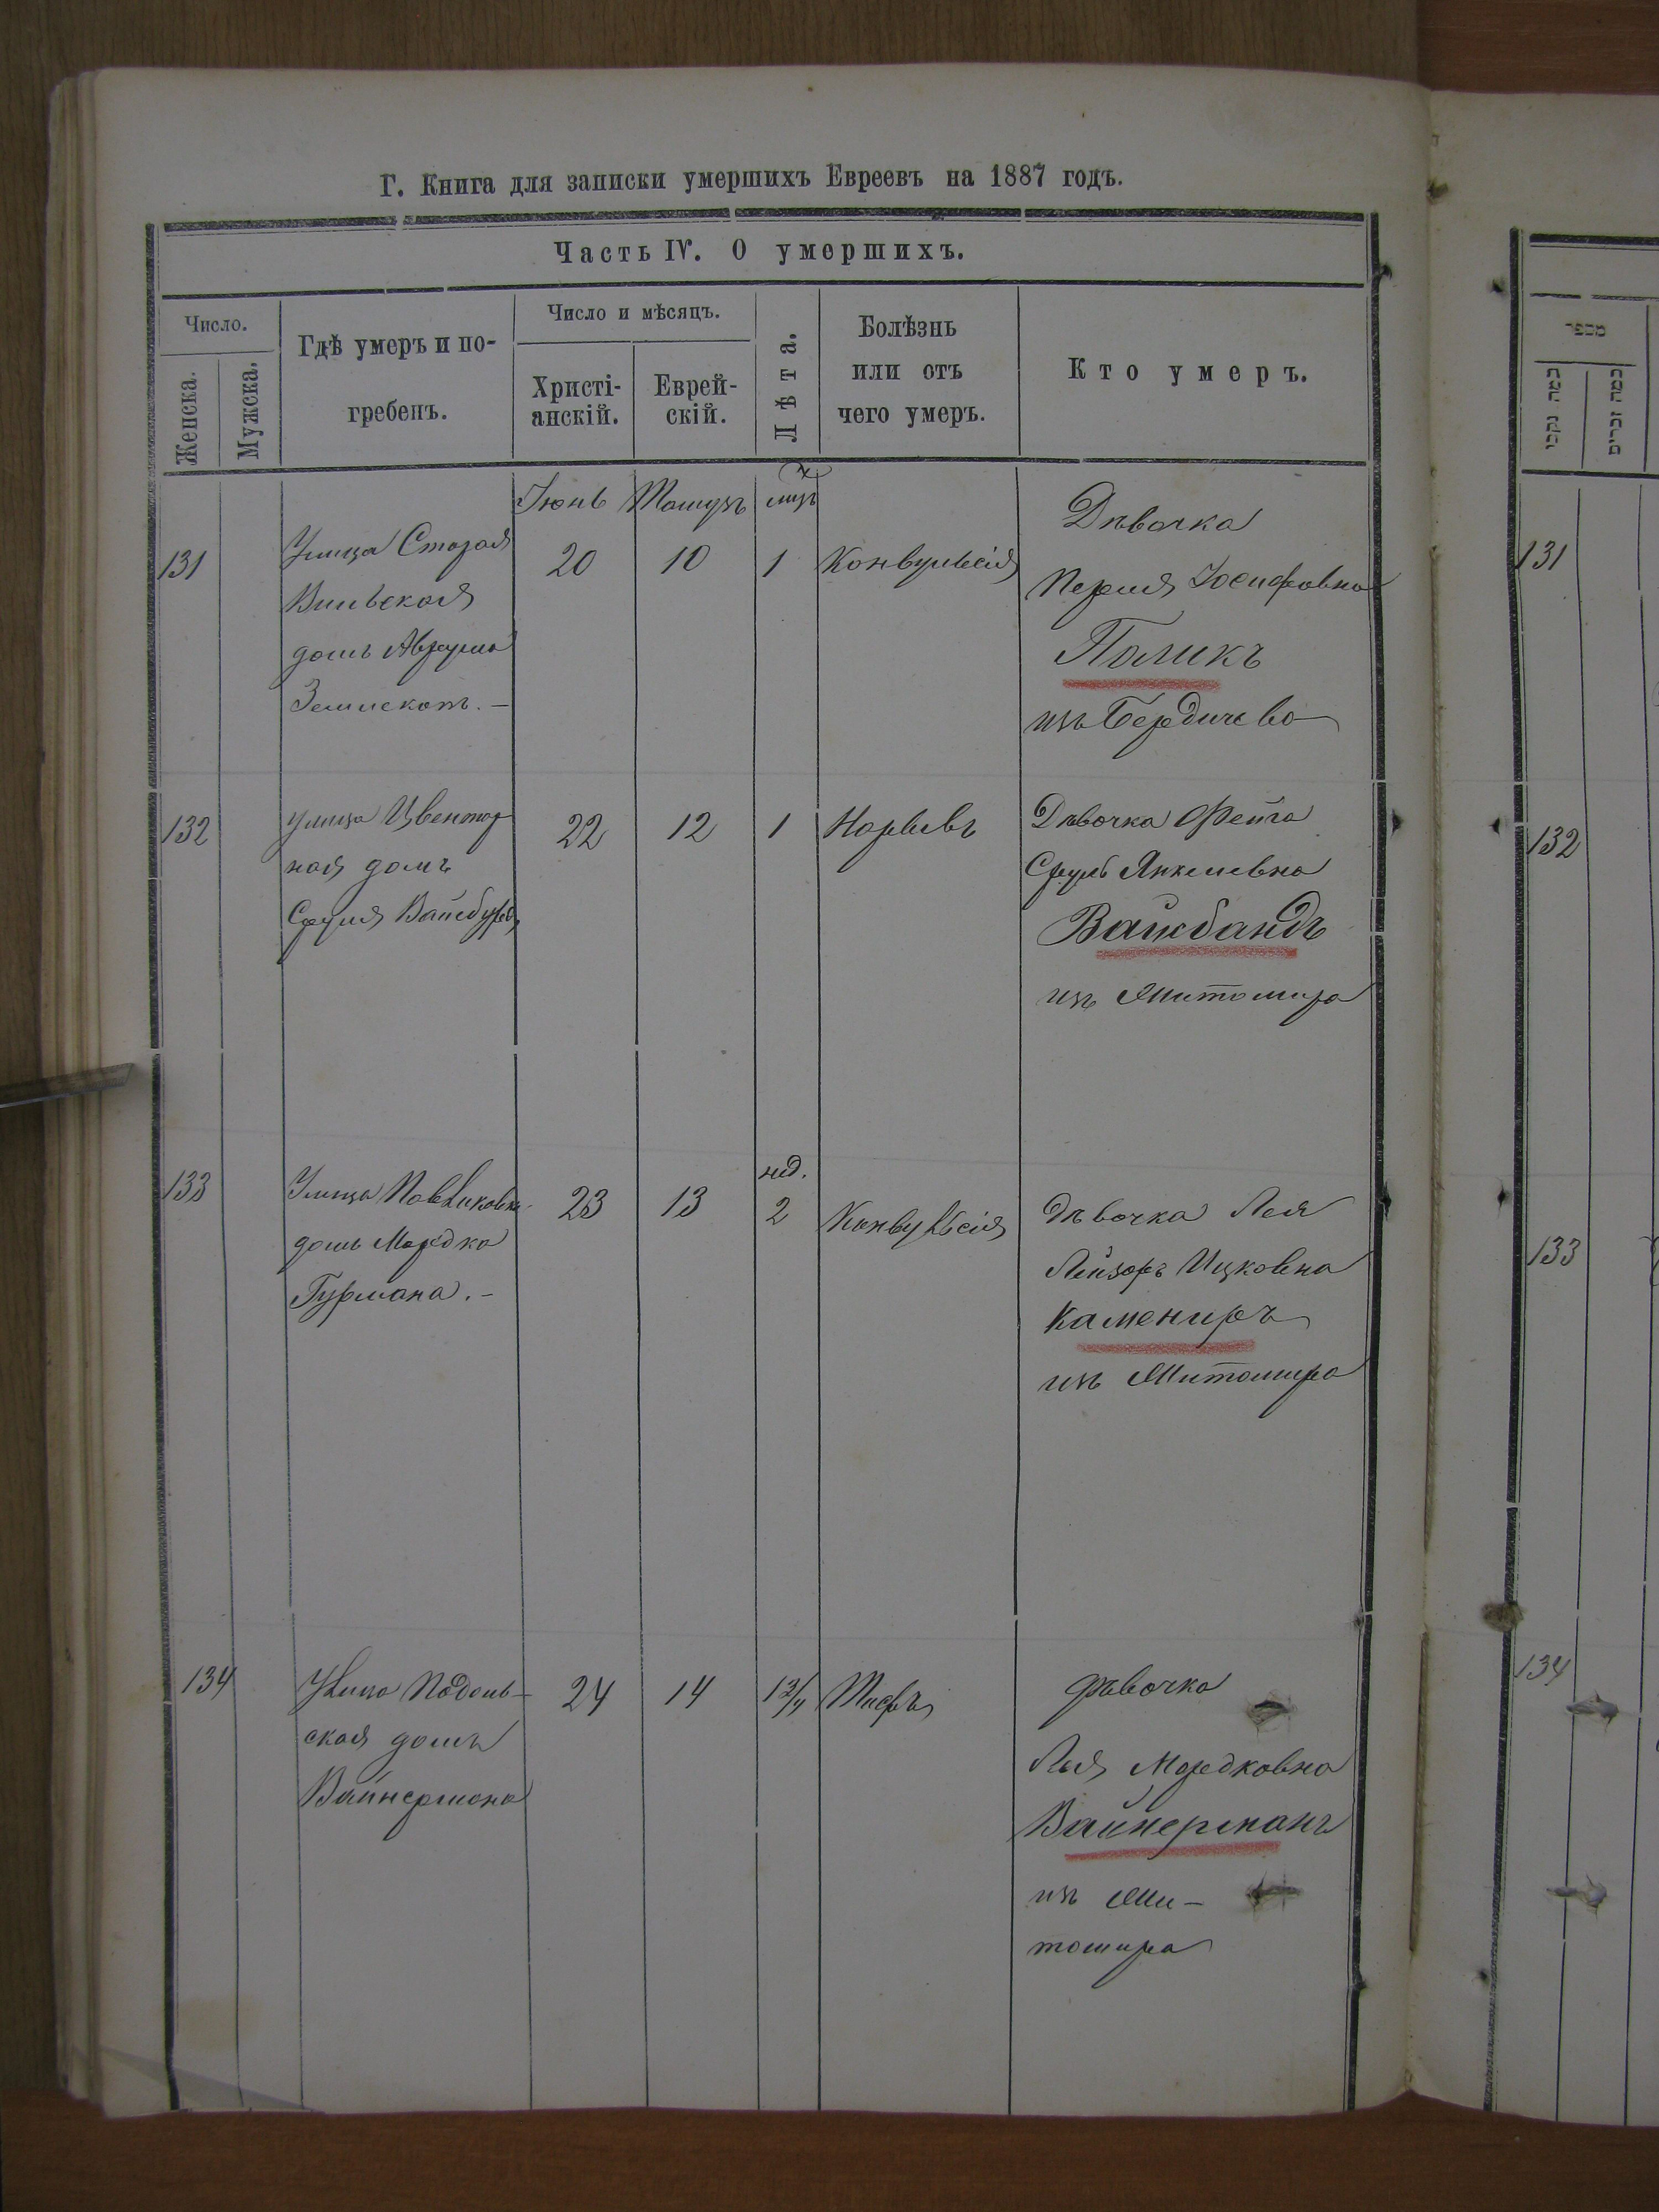 Г. Книга для записки умершихъ Евреевъ на 1887 годъ.
Часть IV. О умершихъ.
Число.
Женска.
Мужска.
Гдѣ умеръ и по-
гребенъ.
Число и мѣсяцъ.
Христі-
анскій.
Еврей-
скій.
Лѣта.
Болѣзнь
или отъ
чего умеръ.
Кто умеръ.
Іюнь Тамузъ
131
Улица Старая
Вильская
домъ Аврума
20 10 1 Конвульсія
Дѣвочка
Перля Іосифовна
Поликъ
изъ Бердичева
132
улица Цвинтар
ная домъ
Сруля
22 12 1
Дѣвочка Фейга
Сруль Янкелевна
Вайсбандъ
изъ Житомира
133
Улица
домъ Мордка
Гурмана.-
23 13
нед.
2
Конвульсія
Дѣвочка Лея
Лейзоръ Ицковна
Камениръ
изъ Житомира
134
Улица Подоль-
ская домъ
Вайнермана
24 14 1 3/4 Тифъ
Дѣвочка
Лея Мордковна
Вайнерманъ
изъ Жи-
томира
מספר
131
132
133
134